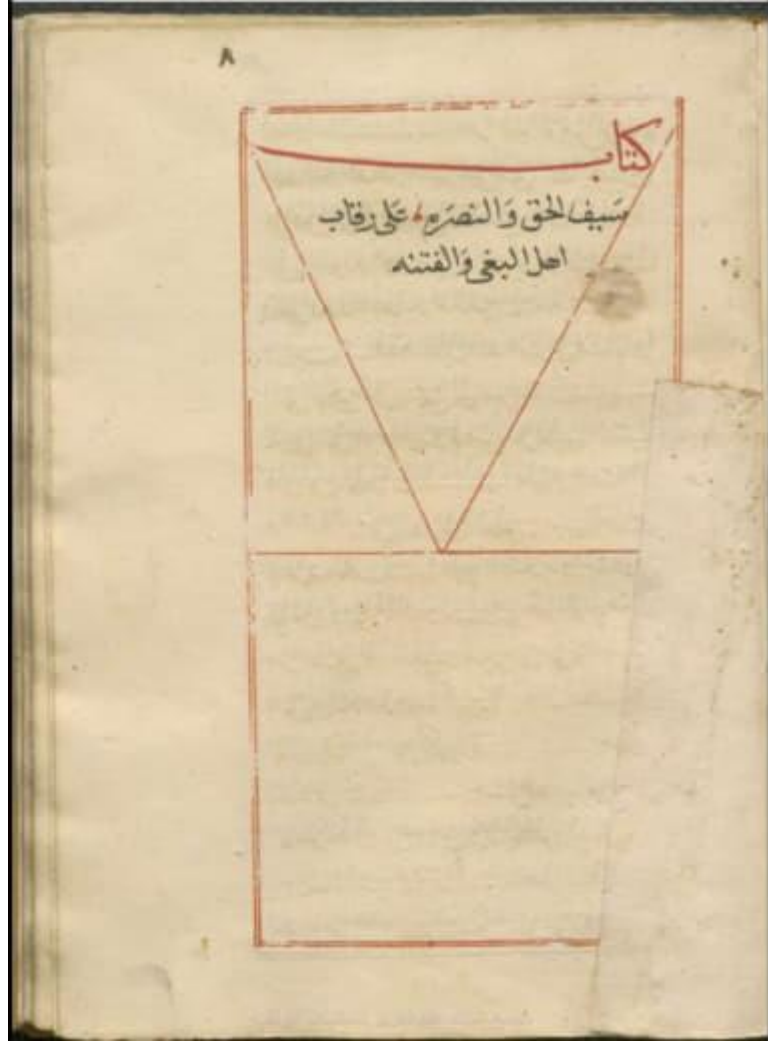 ٨
كتاب
سَيف الحق وَالنصرَه، عَلى رقاب
اهل البغى وَالفتنه